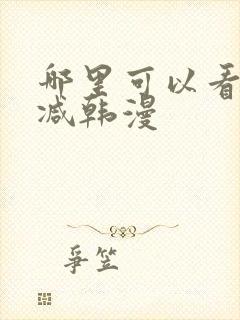 哪里可以看
减韩漫
争笠